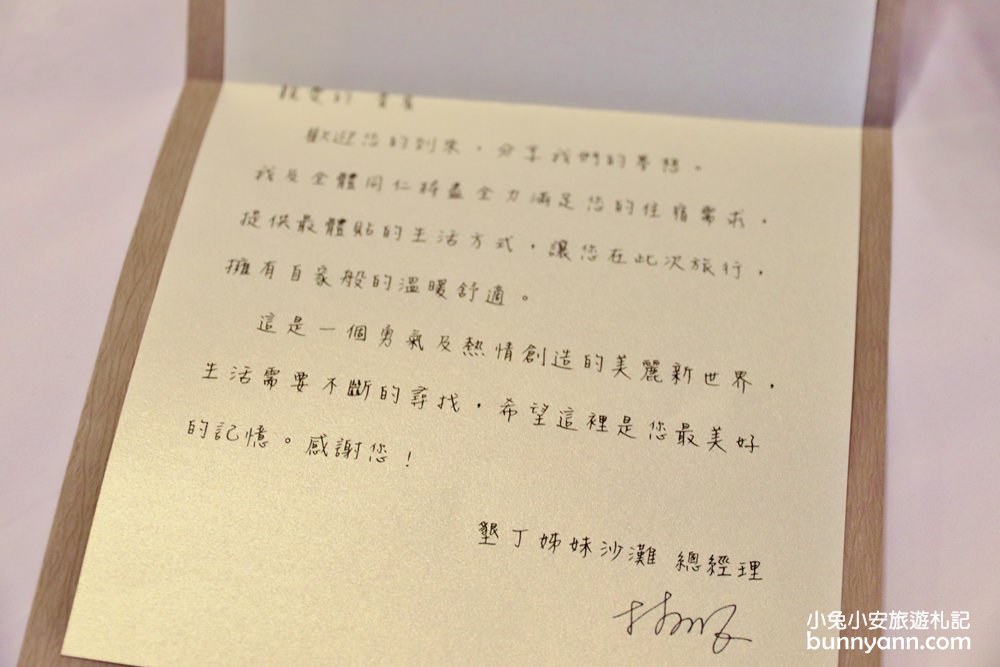 親愛的 貴賓
歡迎您的到來，分享我們的夢想。
我及全體同仁將盡全力滿足您的住宿需求，
提供最體貼的生活方式，讓您在此次旅行，
擁有自家般的溫暖舒適。
這是一個勇氣及熱情創造的美麗新世界，
生活需要不斷的尋找，希望這裡是您最美好
的記憶。感謝您！
墾丁姊妹沙灘 總經理
小兔小安旅遊札記
bunnyann.com